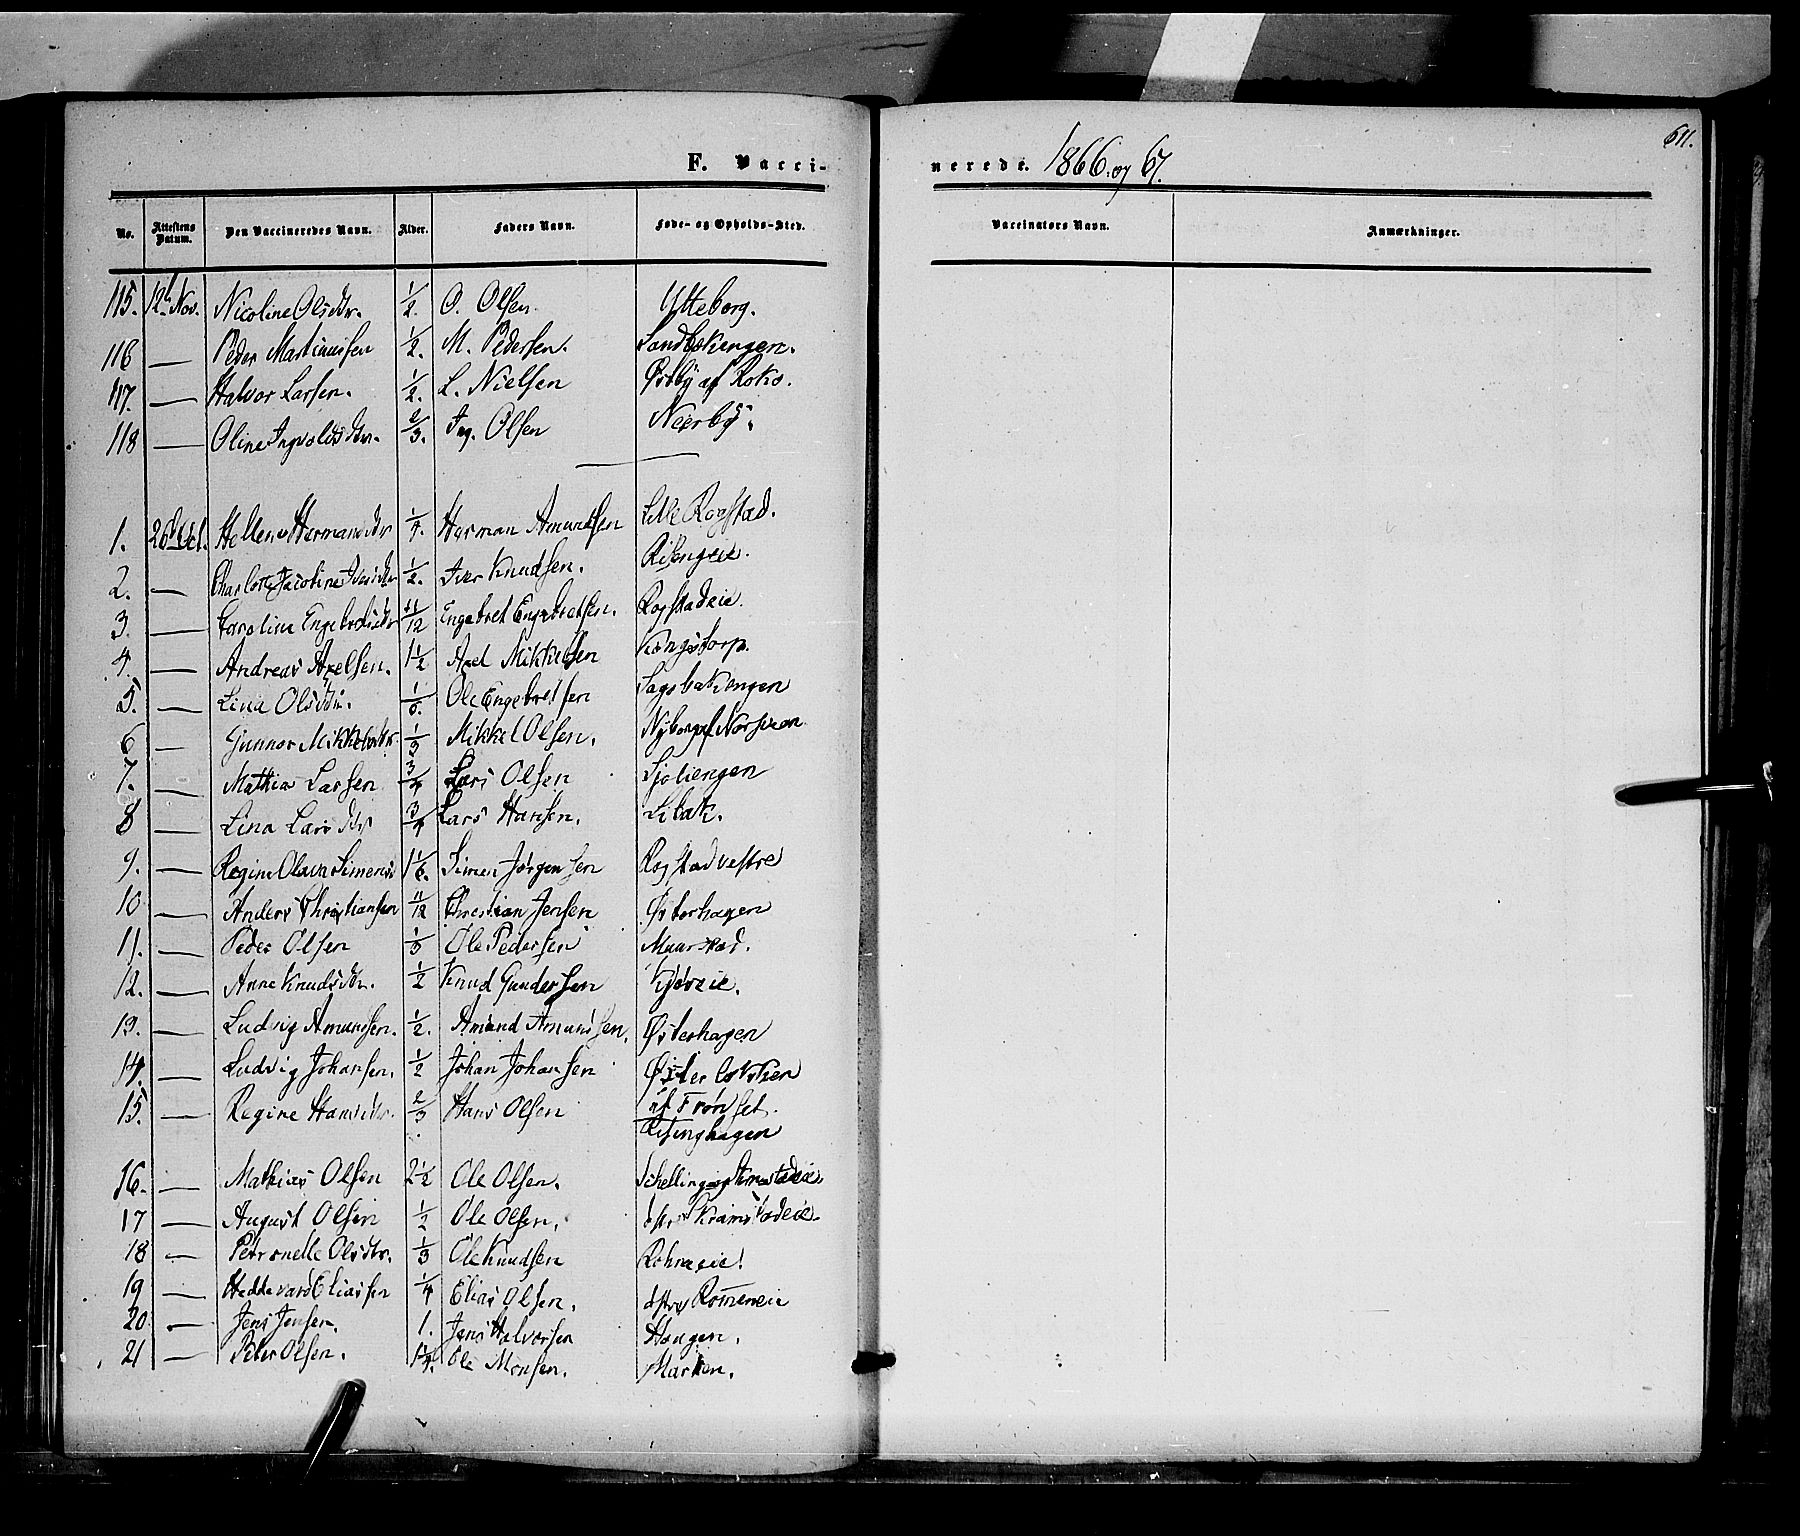 F. Vacci-
nerede. 1866. og 67.
611.
No. Attestens Datum. Den Vaccineredes Navn. Alder. Faders Navn. Føde- og Opholds-Sted. Vaccinators Navn. Anmærkninger.
115. 12te Nov. Nicoline Olsdtr. 1/2. O. Olsen. Ulteborg.
116 — Peder Martinussen 1/2. M. Pedersen. Sandbakengen.
117. — Halvor Larsen. 1/2. L. Nielsen Østby af Roko.
118 — Oline Ingvoldsdtr. 2/3. Ing. Olsen Neerby.
1. 26 Hellene Hermansdtr 1/4. Herman Amundsen Lille Rogstad.
2. — Charlotte Jacobine Iversdtr 1/2. Iver Knudsen. Risengeie.
3. — Caroline Engebretsdtr 11/12 Engebret Engebretsen. Rogstadeie.
4. — Andreas Axelsen. 1 1/2 Axel Mikkelsen Kongstorp.
5. — Lina Olsdtr. 1/6. Ole Engebretsen Sagsbakengen
6 — Gunnor Mikkelsdtr. 1/3 Mikkel Olsen. Nyborg af Norsveen
7. — Mathia Larsen 3/4 Lars Olsen Sjoliengen
8 — Lina Larsdtr 3/4 Lars Hansen. Libak.
9. — Regine Olava Simensd 1 1/6. Simen Jørgensen Rogstad vestre
10 — Anders Christiansen 11/12 Christian Jensen Østerhagen
11. — Peder Olsen 1/3 Ole Pedersen Maarstad.
12. — Anne Knudsdtr. 1/2 Knud Gundersen Kjøreie.
13. — Ludvig Amundsen. 1/2. Amund Amundsen. Østerhagen
14. — Ludvig Johansen. 1/2 Johan Johansen Øster
15. — Regine Hansdtr. 2/3 Hans Olsen af Frønset.
Risinghagen
16. — Mathias Olsen 2 1/2 Ole Olsen. Schelling
17 — August Olsen 1/2 Ole Olsen. østre Kramstadeie.
18 — Petronelle Olsdtr. 1/3 Ole Knudsen Rohneeie.
19 — Heddevard Eliassen 1/4 Elias Olsen. østre Romeneie
20 — Jens Jensen. 1. Jens Halvorsen Haugen.
21 — Peter Olsen. 1 1/4. Ole Monsen. Marken.